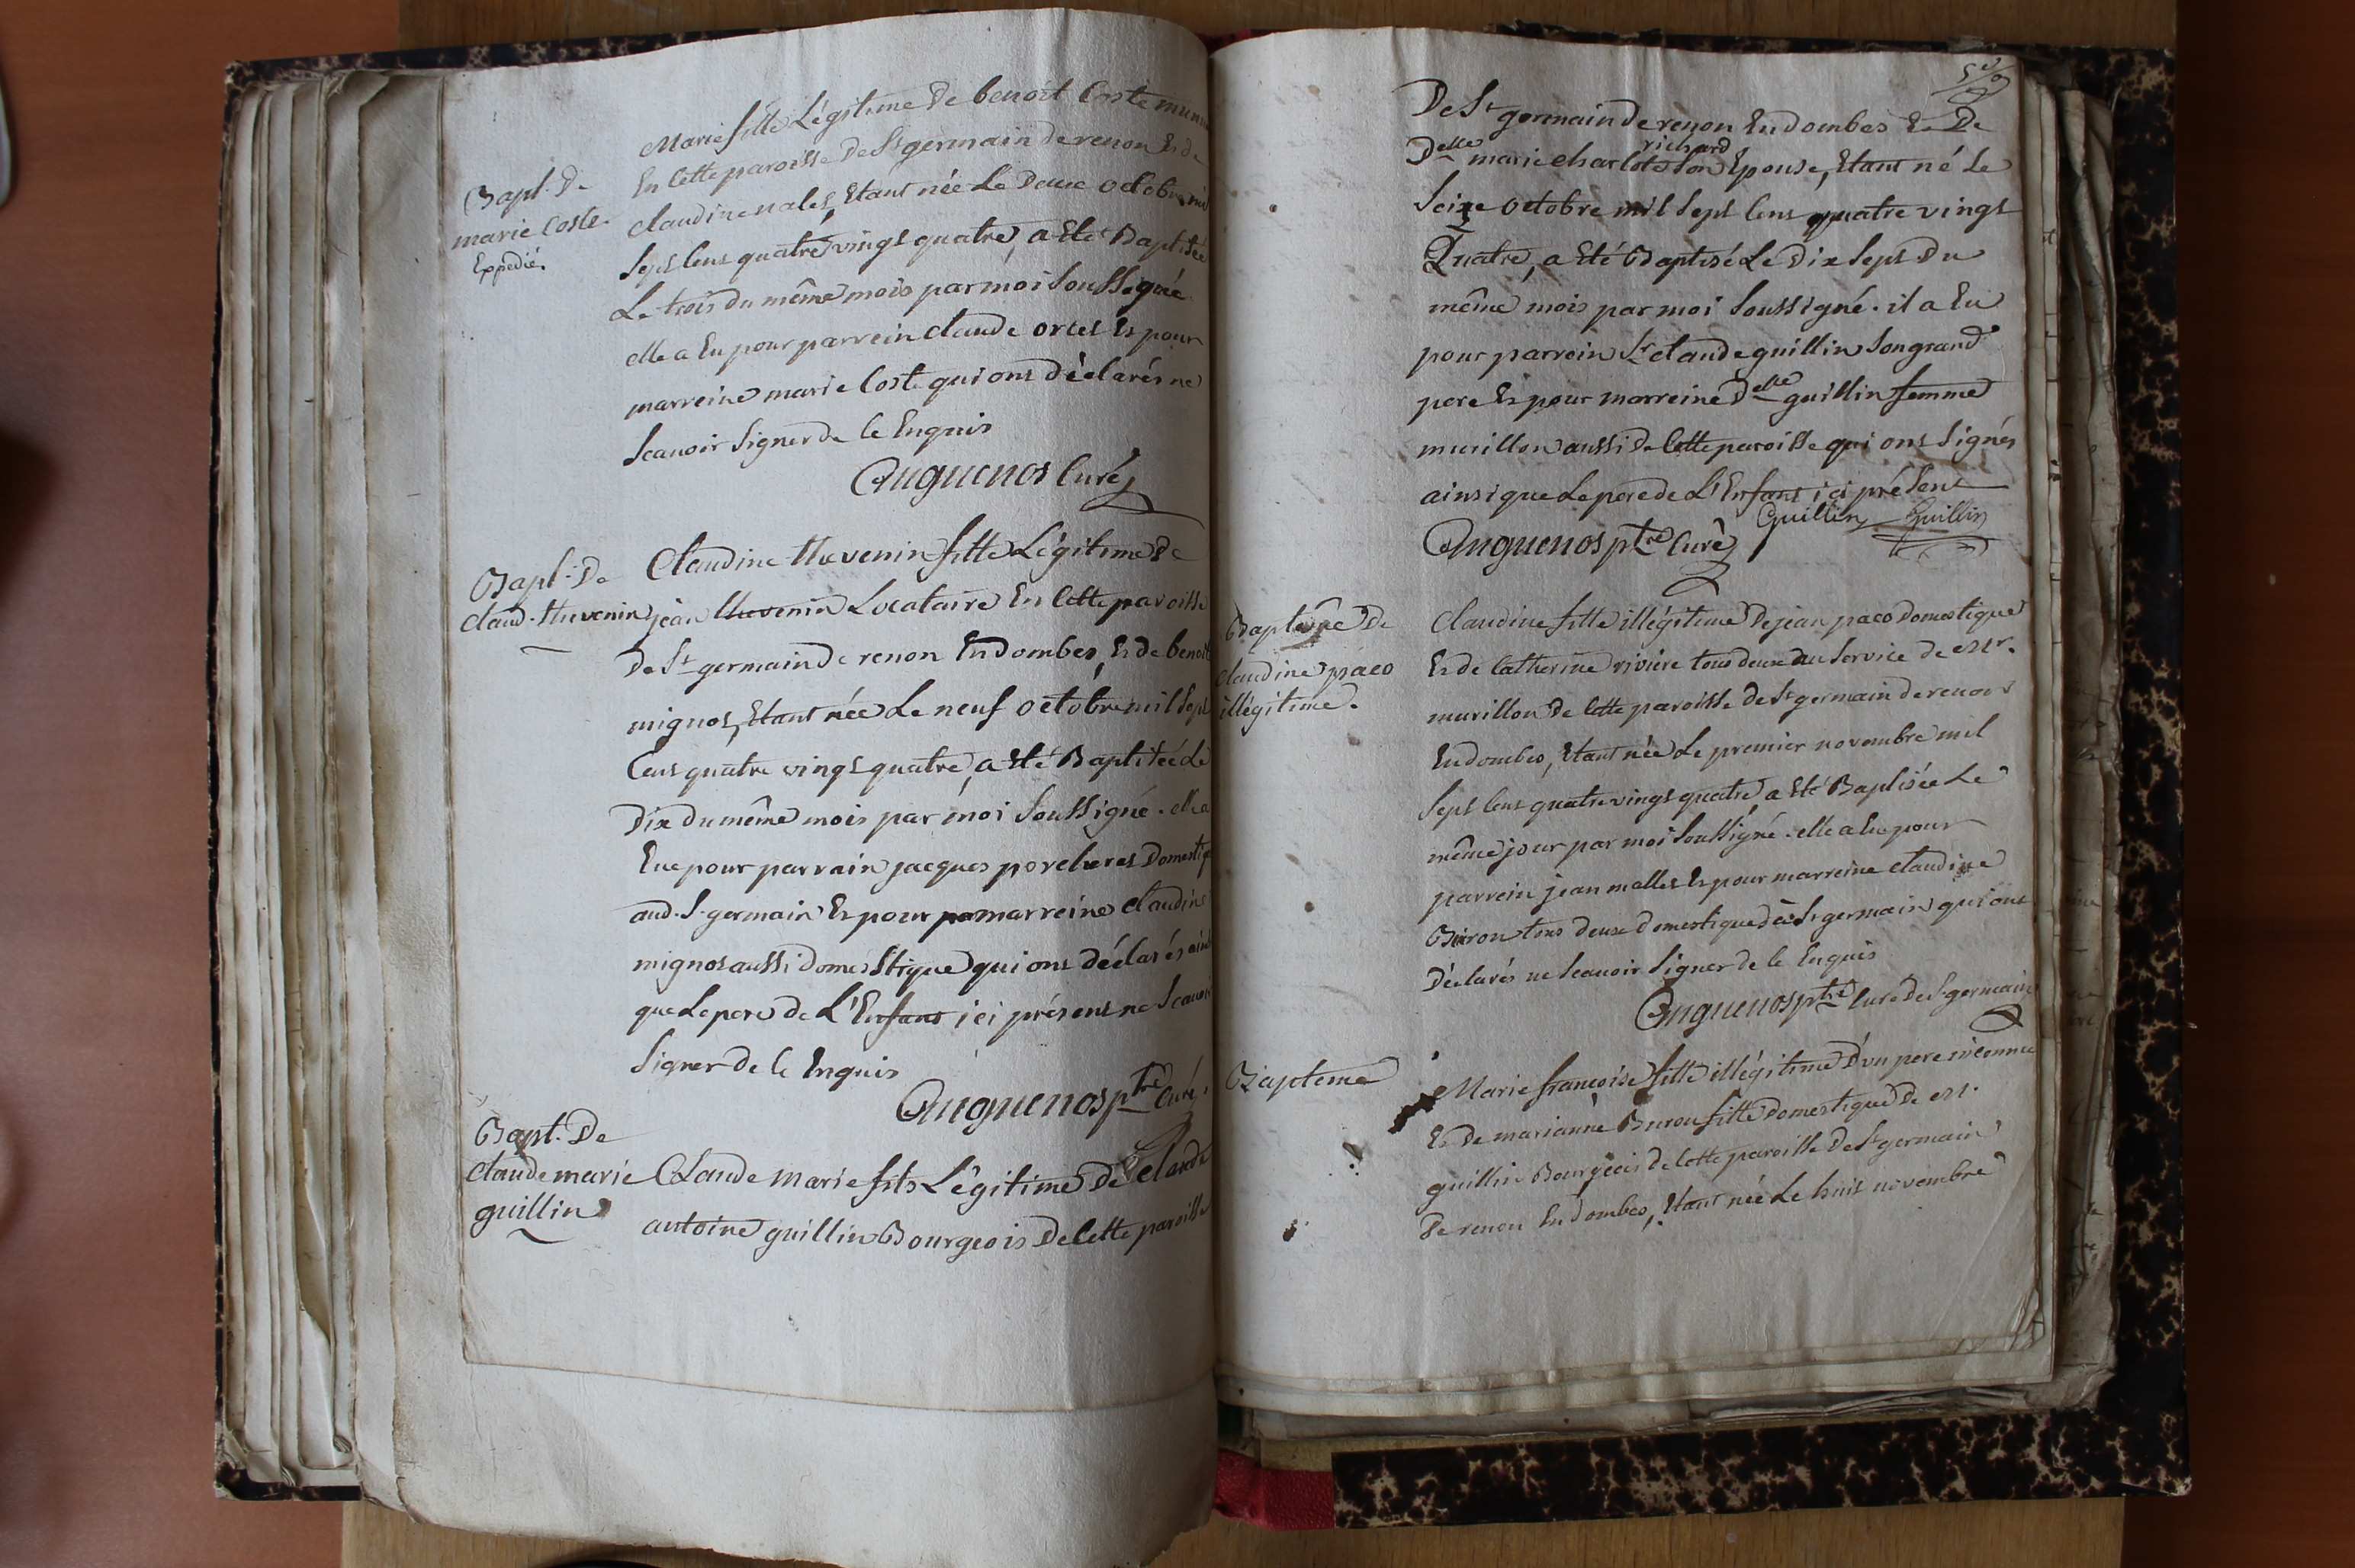 Bapt. De
marie Coste.
Expedié.
Marie fille Légitime De benoit Coste
En Cette paroisse De St germain de renon Et de
claudine nalet, Etant née Le Deux octobre mil
Sept Cent quatre vingt quatre, a Eté Baptisée
Le trois du même mois par moi Soussigné
elle a Eu pour parrein claude orcet Et pour
marreine marie Coste qui ont déclarés ne
Scavoir Signer de Ce Enquis
Anguenot Curé
Bapt. De
claud. thevenin
Claudine thevenin fille Légitime De
jean thevenin Locataire En Cette paroisse
De St germain de renon En dombes, Et de benoit
mignot, Etant née Le neuf octobre mil Sept
Cent quatre vingt quatre, a Eté Baptisée Le
Dix du même mois par moi Soussigné. elle a
Eue pour parrain jacques porcheret Domestiq
aud. St germain Et pour marreine claudine
mignot aussi domestique qui ont déclarés ainsi
que Le pere de L'Enfant ici présent ne Scavoir
Signer de Ce Enquis
Anguenot ptre Curé
Bapt. De
claude marie
guillin
Claude marie fils Légitime De claude
antoine guillin Bourgeois De Cette paroisse
De St germain de renon En dombes Et De
Delle marie charlote richard Son Epouse, Etant né Le
Seize octobre mil Sept Cent quatre vingt
Quatre, a Eté Baptisé Le Dix Sept Du
même mois par moi Soussigné. il a Eu
pour parrein Sr claude guillin Son grand
pere Et pour marreine Delle guillin femme
murillon aussi de Cette paroisse qui ont Signés
ainsi que Le pere de L'Enfant ici présent
Guillin Guillin
Anguenot ptre Curé
Baptême De
claudine paco
illégitime.
Claudine fille illégitime De jean paco Domestique
Et de Catherine riviere tous deux au Service de Mr.
murillon De Cette paroisse de St germain de renon
En dombes, Etant née Le premier novembre mil
Sept Cent quatre vingt quatre, a Eté Baptisée Le
même jour par moi Soussigné. elle a Eue pour
parrein jean mallet Et pour marreine claudine
Buiron tous deux domestiques à St germain qui ont
Déclarés ne Scavoir Signer de Ce Enquis
Anguenot ptre Curé De St germain
Bapteme
Marie françoise fille illégitime D'un pere inconnu
Et De marianne Buron fille Domestique De Mr.
guillin Bourgeois de Cette paroisse De St germain
De renon En dombes, Etant née Le huit novembre